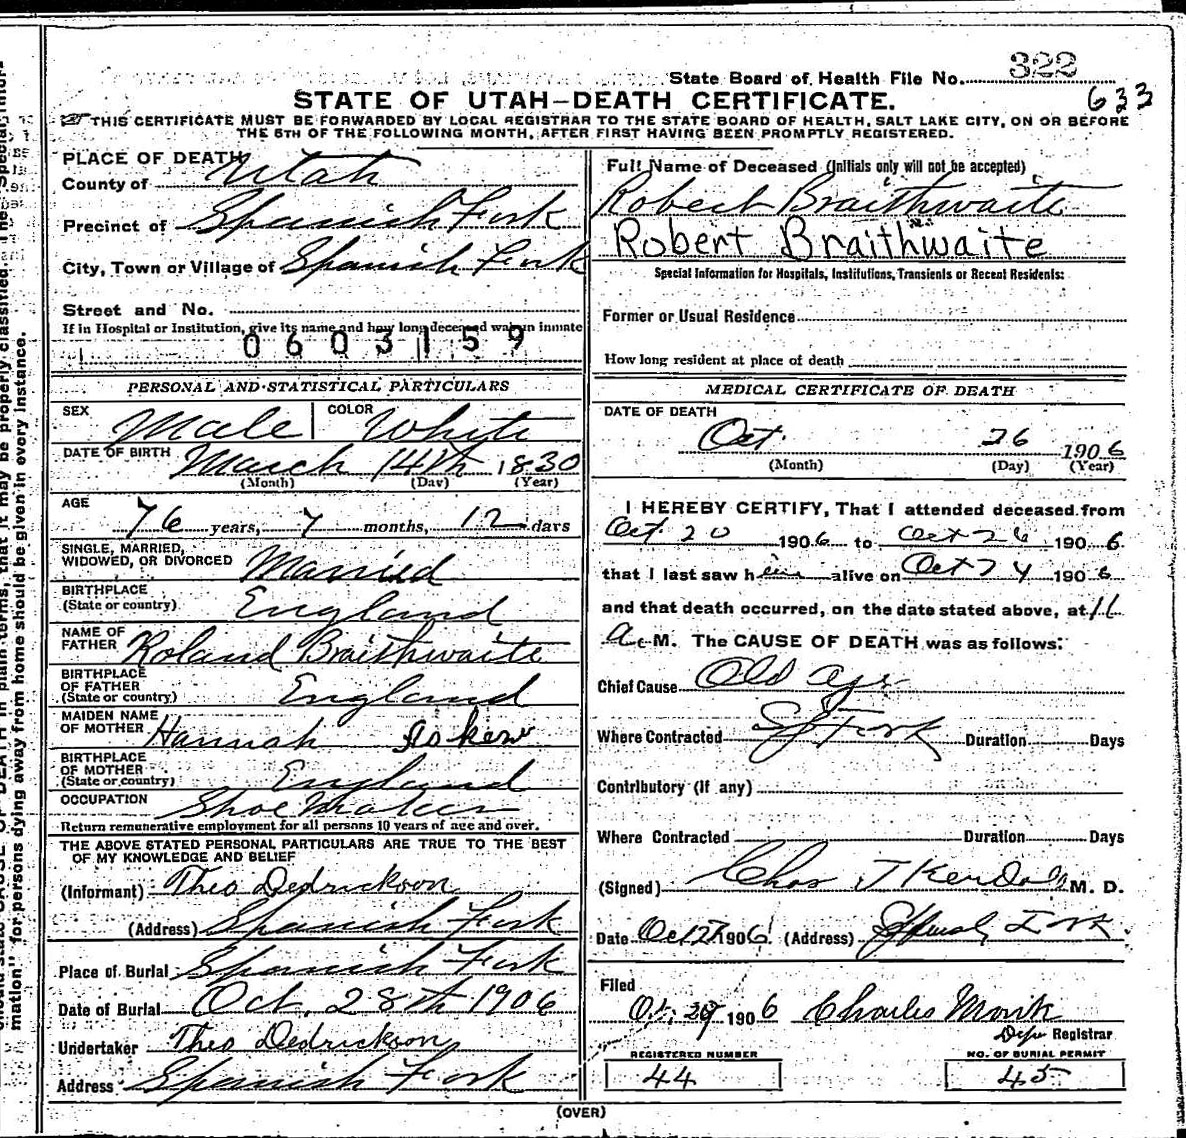 322
State Board of Health File No.
633
STATE OF UTAH—DEATH CERTIFICATE.
THIS CERTIFICATE MUST BE FORWARDED BY LOCAL REGISTRAR TO THE STATE BOARD OF HEALTH, SALT LAKE CITY, ON OR BEFORE
THE 5TH OF THE FOLLOWING MONTH, AFTER FIRST HAVING BEEN PROMPTLY REGISTERED.
PLACE OF DEATH
County of Utah
Precinct of Spanish Fork
City, Town or Village of Spanish Fork
Street and No.
If in Hospital or Institution, give its name and how long deceased was an inmate
0603159
PERSONAL AND STATISTICAL PARTICULARS
SEX Male COLOR White
DATE OF BIRTH March 14th 1830
(Month) (Day) (Year)
AGE
76 years, 7 months, 12 days
SINGLE, MARRIED,
WIDOWED, OR DIVORCED Married
BIRTHPLACE
(State or country) England
NAME OF
FATHER Roland Braithwaite
BIRTHPLACE
OF FATHER
(State or country) England
MAIDEN NAME
OF MOTHER Hannah Askew
BIRTHPLACE
OF MOTHER
(State or country) England
OCCUPATION Shoe Maker
Return remunerative employment for all persons 10 years of age and over.
THE ABOVE STATED PERSONAL PARTICULARS ARE TRUE TO THE BEST
OF MY KNOWLEDGE AND BELIEF
(Informant) Theo Dedrickson
(Address) Spanish Fork
Place of Burial Spanish Fork
Date of Burial Oct. 28th 1906
Undertaker Theo Dedrickson
Address Spanish Fork
Full Name of Deceased (Initials only will not be accepted)
Robert Braithwaite
Robert Braithwaite
Special Information for Hospitals, Institutions, Transients or Recent Residents:
Former or Usual Residence
How long resident at place of death
MEDICAL CERTIFICATE OF DEATH
DATE OF DEATH
Oct. 26 1906
(Month) (Day) (Year)
I HEREBY CERTIFY, That I attended deceased from
Oct 20 1906 to Oct 26 1906
that I last saw him alive on Oct 24 1906
and that death occurred, on the date stated above, at 11
a.M. The CAUSE OF DEATH was as follows:
Chief Cause Old Age
Where Contracted Sp Fork Duration Days
Contributory (If any)
Where Contracted Duration Days
(Signed) Chas J Kendall M. D.
Date Oct 27 1906 (Address) Spanish Fork
Filed
Oct. 29 1906 Charles Monk
Dep Registrar
REGISTERED NUMBER
44
NO. OF BURIAL PERMIT
45
(OVER)
mation" for persons dying away from home should be given in every instance.